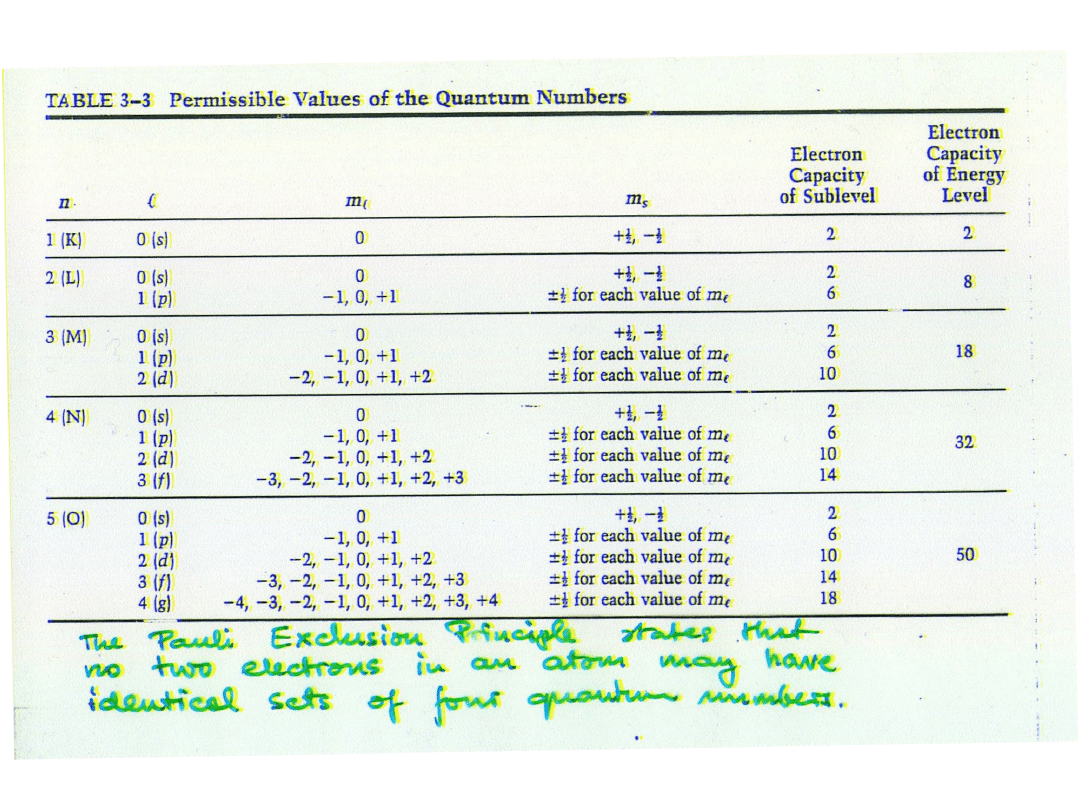 TABLE 3–3 Permissible Values of the Quantum Numbers
n ℓ mℓ ms Electron Capacity of Sublevel Electron Capacity of Energy Level
1 (K) 0 (s) 0 +½, −½ 2 2
2 (L) 0 (s) 0 +½, −½ 2 8
1 (p) −1, 0, +1 ±½ for each value of mℓ 6
3 (M) 0 (s) 0 +½, −½ 2
1 (p) −1, 0, +1 ±½ for each value of mℓ 6 18
2 (d) −2, −1, 0, +1, +2 ±½ for each value of mℓ 10
4 (N) 0 (s) 0 +½, −½ 2
1 (p) −1, 0, +1 ±½ for each value of mℓ 6 32
2 (d) −2, −1, 0, +1, +2 ±½ for each value of mℓ 10
3 (f) −3, −2, −1, 0, +1, +2, +3 ±½ for each value of mℓ 14
5 (O) 0 (s) 0 +½, −½ 2
1 (p) −1, 0, +1 ±½ for each value of mℓ 6
2 (d) −2, −1, 0, +1, +2 ±½ for each value of mℓ 10 50
3 (f) −3, −2, −1, 0, +1, +2, +3 ±½ for each value of mℓ 14
4 (g) −4, −3, −2, −1, 0, +1, +2, +3, +4 ±½ for each value of mℓ 18
The Pauli Exclusion Principle states that
no two electrons in an atom may have
identical sets of four quantum numbers.